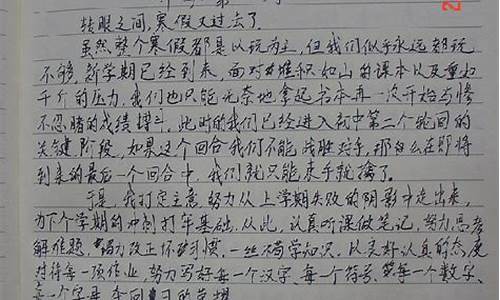 转眼之间,寒假又过去了。
虽然整个寒假都是以玩为主,但我们似乎永远都玩
不够。新学期已经到来,面对堆积如山的课本以及重如
千斤的压力,我们也只能无奈地拿起书本再一次开始与惨
不忍睹的成绩搏斗,此时的我们已经进入初中第二个轮回的
关键阶段,如果这个回合我们不能战胜对手,那么在即将
到来的最后一个回合中,我们就只能束手就擒了。
于是,我打定主意努力从上学期失败的阴影中走出来,
为下个学期的冲刺打牢基础,从此,认真听课做笔记,努力思考
解难题,努力改正坏习惯,一丝不苟学知识。以良好认真的态度
对待每一项作业,努力写好每一个汉字、每一个符号、每一个数字、